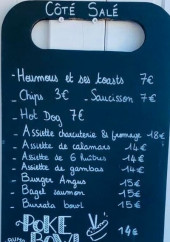 CÔTÉ SALÉ
- Houmous et ses toasts 7€
- Chips 3€ - Saucisson 7€
- Hot Dog 7€
- Assiette charcuterie & fromage 18€
- Assiette de calamars 14€
- Assiette de 6 huîtres 14€
- Assiette de gambas 14€
- Burger Angus 15€
- Bagel saumon 15€
- Burrata bowl 15€
POKE
BOWL 14€